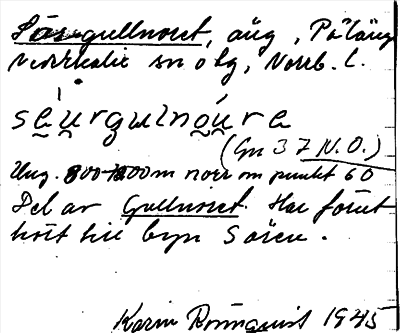 Särgullnoret, äng, På läng
sn o lg, Norrb. l.
séurgulnóura
(Gn 37 N.O.)
Ung. 800-1000 m norr om punkt 60
Del av Gullnoret. Har förut
hört till byn Sören.
Karin 1945